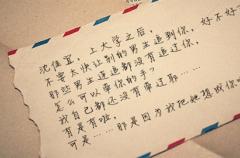 沈佳宜,上大学之后,
不要太快让别的男生追到你,好不好?
那些男生追没有追过你,
怎么可以带你的手。
我自己都还没有带过耶……
有是有啦,
可是……那是因为我把她想成你